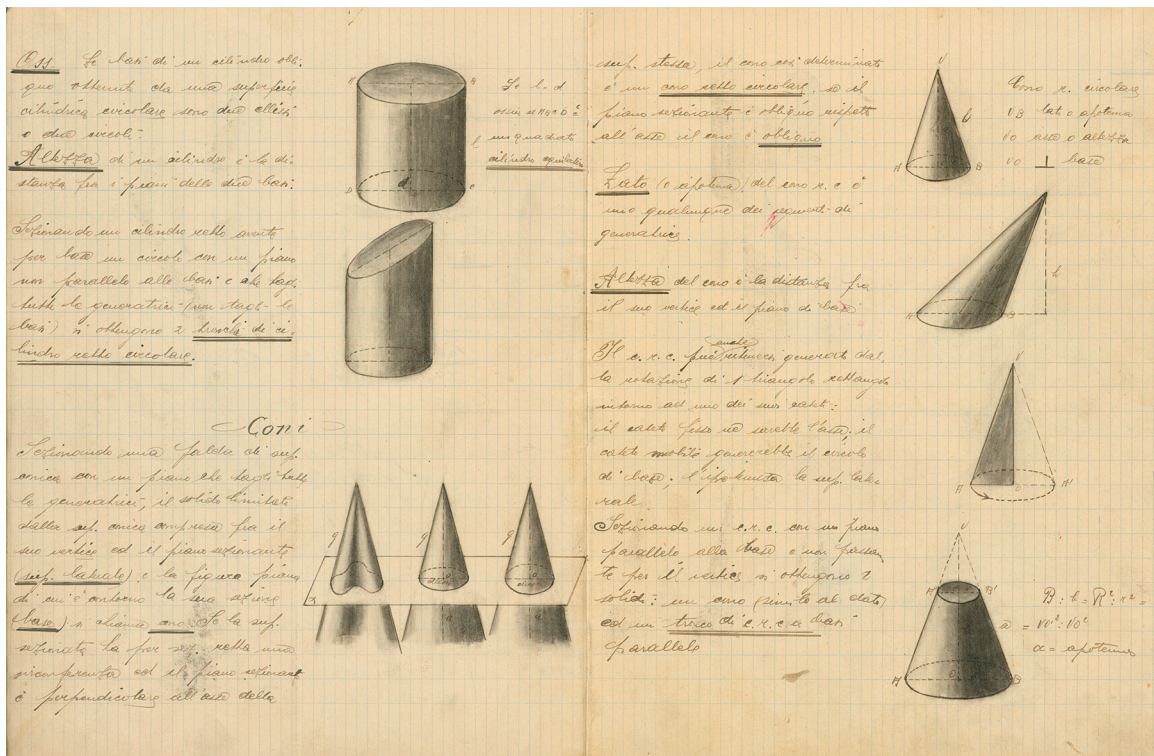 Oss Le basi di un cilindro obli-
quo ottenute da una superficie
cilindrica circolare sono due ellissi
o due circoli.
Altezza di un cilindro è la di-
stanza fra i piani delle due basi.
Sezionando un cilindro retto avente
per base un circolo con un piano
non parallelo alle basi e che tagli
tutte le generatrici (non tagli le
basi) si ottengono 2 tronchi di ci-
lindro retto circolare.
A
B
D
C
d
l
Se l = d
ossia se ABCD è
un quadrato
cilindro equilatero
Coni
Sezionando una falda di sup.
conica con un piano che tagli tutte
le generatrici, il solido limitato
dalla sup. conica compresa fra il
suo vertice ed il piano sezionante
(sup. laterale) e la figura piana
di cui è contorno la sua sezione
(base) si chiama cono. Se la sup.
sezionata ha per sez. retta una
circonferenza ed il piano sezionante
è perpendicolare all'asse della
g
g
g
sup. stessa, il cono così determinato
è un cono retto circolare, se il
piano sezionante è obliquo rispetto
all'asse il cono è obliquo
Lato (o apotema) del cono r. c è
uno qualunque dei segmenti di
generatrice.
Altezza del cono è la distanza fra
il suo vertice ed il piano di base
Il c. r. c. può anche ritenersi generato dal-
la rotazione di 1 triangolo rettangolo
intorno ad uno dei suoi cateti:
il cateto fisso ne sarebbe l'asse, il
cateto mobile genererebbe il circolo
di base, l'ipotenusa la sup. late-
rale.
Sezionando un c.r.c. con un piano
parallelo alla base e non passan
te per il vertice si ottengono 2
solidi: un cono (simile al dato)
ed un tronco di c.r.c a basi
parallele
V
A
B
Cono r. circolare
VB lato o apotema
VO asse o altezza
VO ⊥ base
A
B
h
V
A
A'
V
A'
B'
A
B
B : b = R² : r² =
= VO² : VO'²
a = apotema